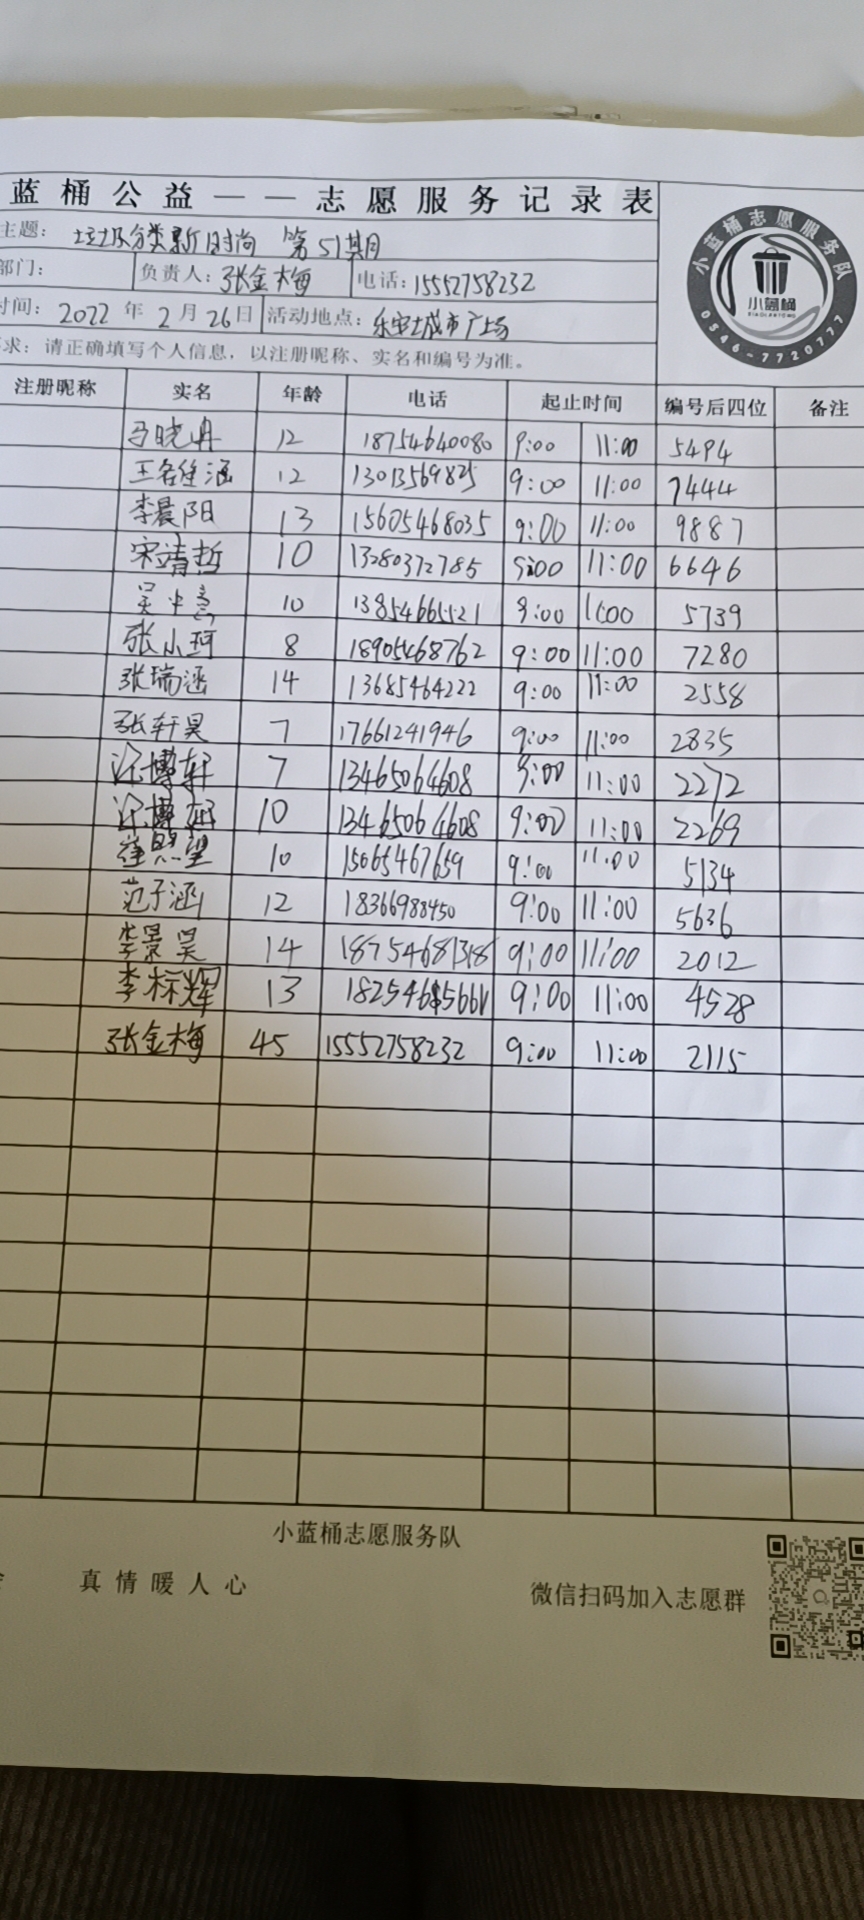 蓝桶公益——志愿服务记录表
主题: 垃圾分类新时尚 第51期
部门: 负责人: 张金梅 电话: 15552758232
时间: 2022年2月26日 活动地点: 城市广场
求: 请正确填写个人信息，以注册昵称、实名和编号为准。
注册昵称 实名 年龄 电话 起止时间 编号后四位 备注
马晓冉 12 18754640080 9:00 11:00 5494
王 涵 12 13013569825 9:00 11:00 7444
李晨阳 13 15605468035 9:00 11:00 9887
宋靖哲 10 13280372785 9:00 11:00 6646
吴 10 13854665521 9:00 11:00 5739
张小珂 8 18905468762 9:00 11:00 7280
张瑞涵 14 13685464222 9:00 11:00 2558
张轩昊 7 17661241946 9:00 11:00 2835
博轩 7 13465064608 9:00 11:00 2272
博 10 13465064608 9:00 11:00 2269
望 10 15065467659 9:00 11:00 5134
范子涵 12 18366988450 9:00 11:00 5636
李景昊 14 18754681318 9:00 11:00 2012
李标辉 13 9:00 11:00 4528
张金梅 45 15552758232 9:00 11:00 2115
小蓝桶志愿服务队
真情暖人心
微信扫码加入志愿群
小蓝桶志愿服务队
小蓝桶
XIAOLANTONG
0546-7720777